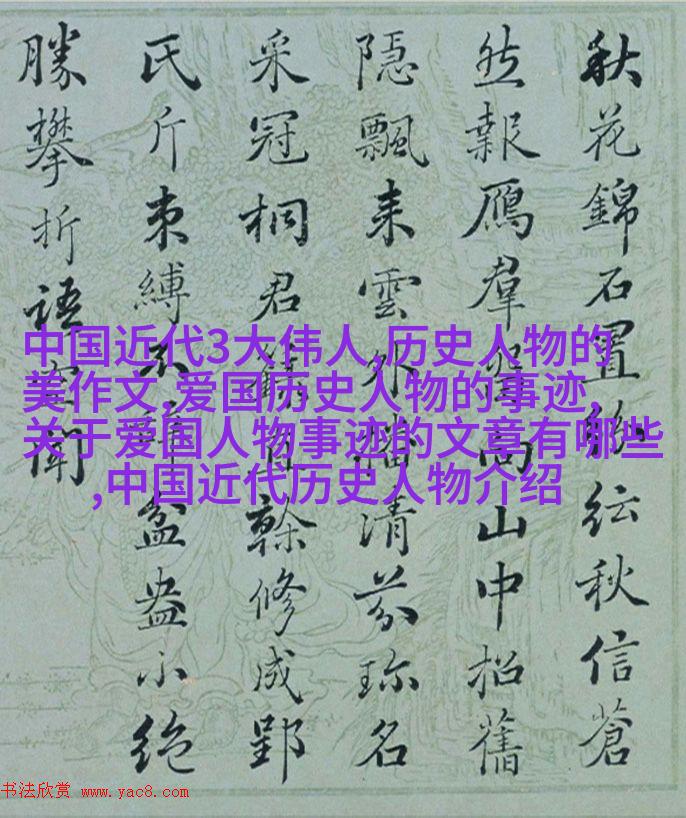 秋花錦石置紜秋信蒼
然報鴈羣向山中招舊
隱飄来雲外清芬珎名
采冠桐君幹修成郢
氏斤束縛不辭盆盎小絶
勝攀折語聞
中国近代3大伟人,历史人物的
美作文,爱国历史人物的事迹,
关于爱国人物事迹的文章有哪些
,中国近代历史人物介绍
书法欣赏 www.yac8.com